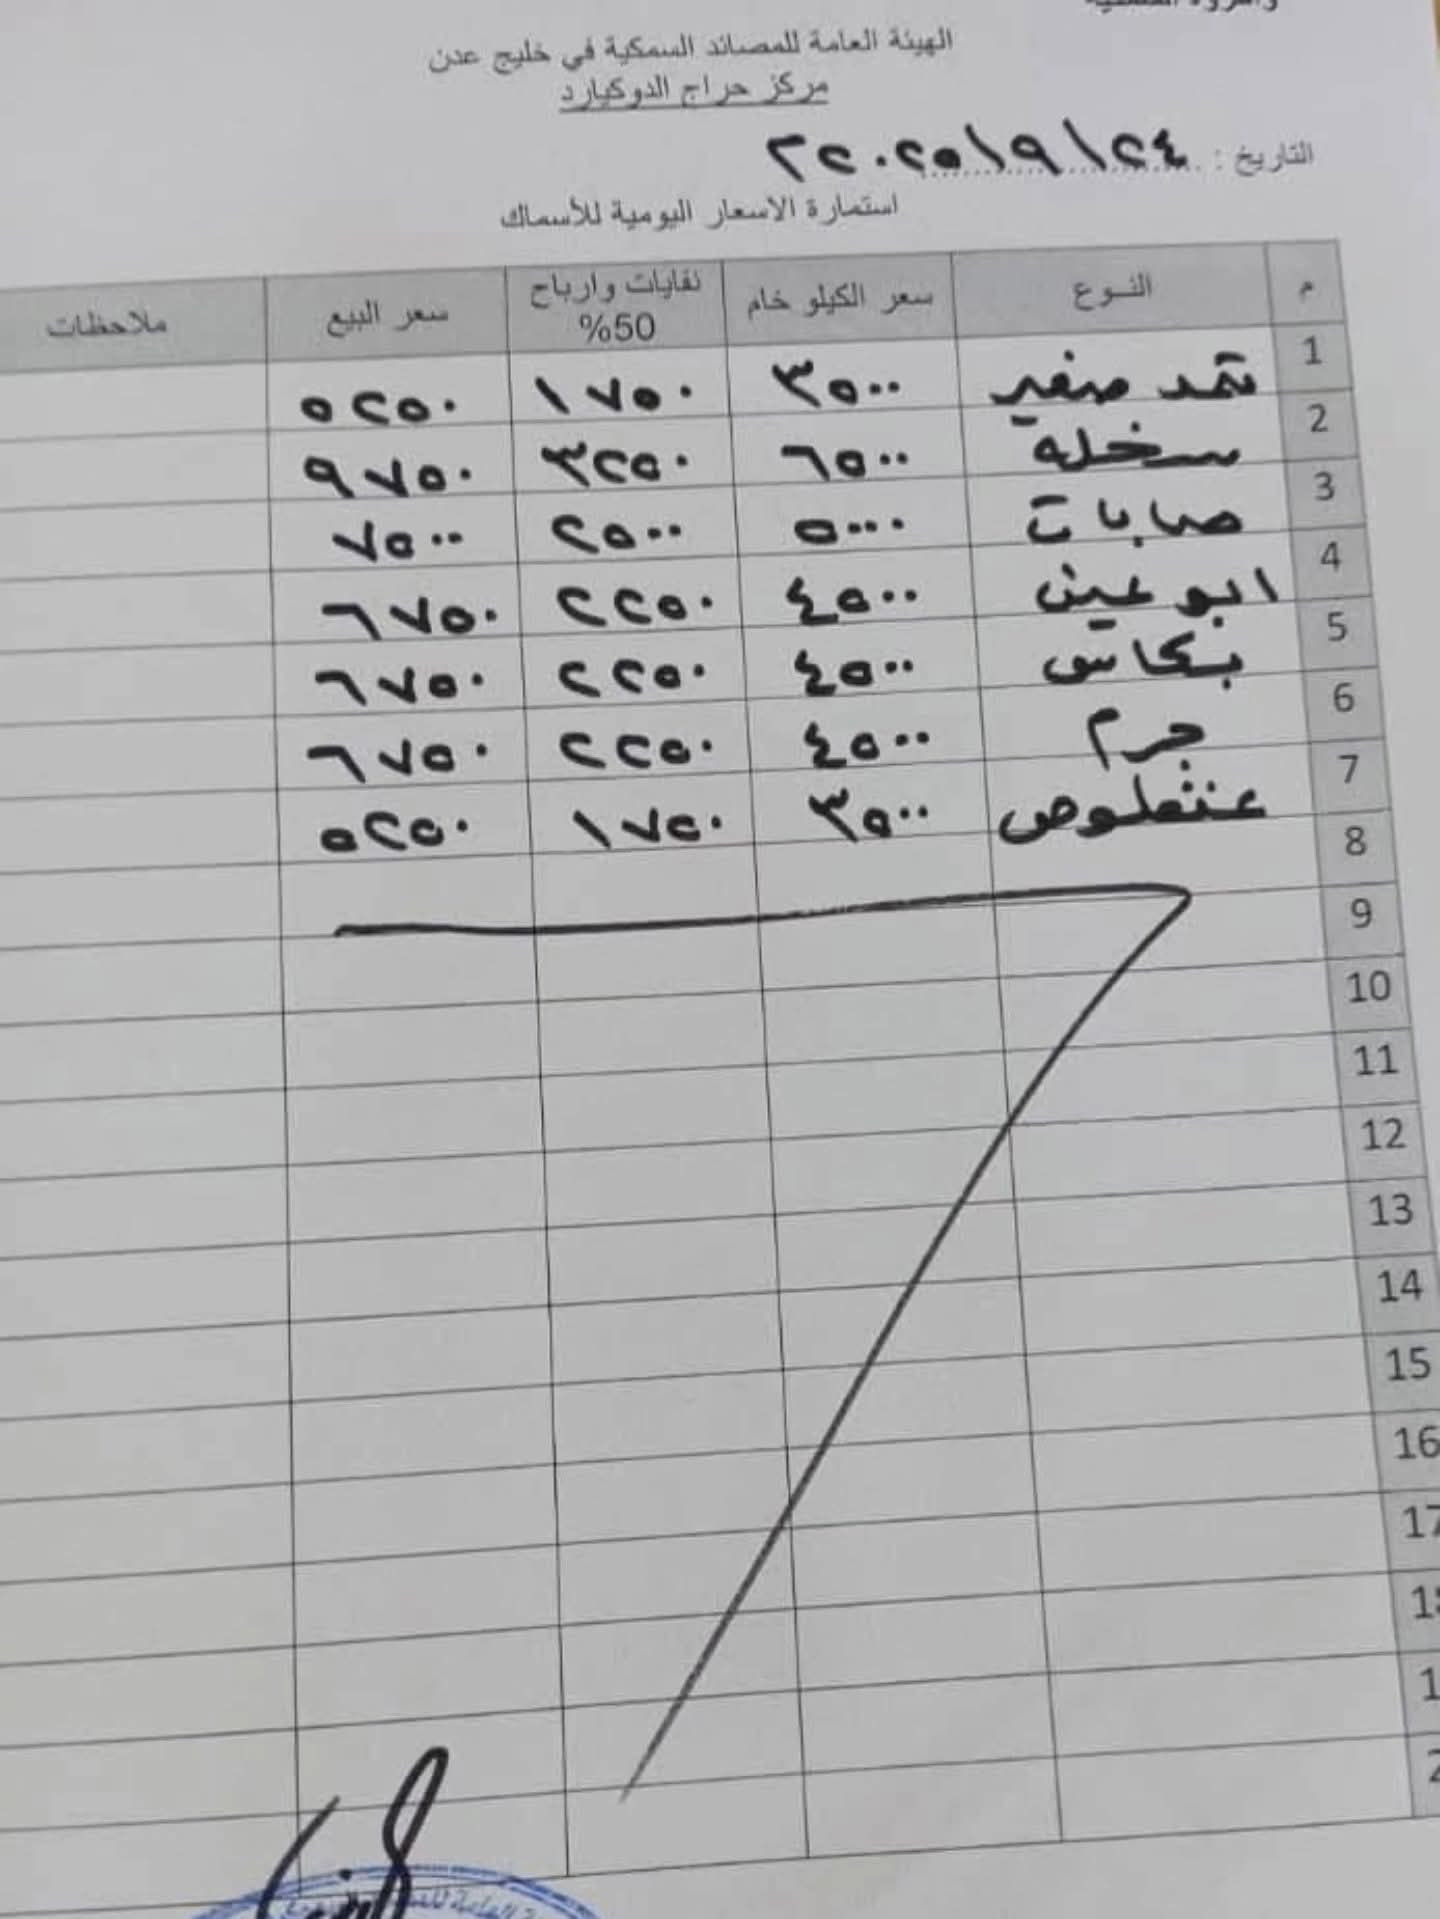 الهيئة العامة للمصائد السمكية في خليج عدن
مركز حراج الدوكيارد
التاريخ : ٢٤/٩/٢٠٢٥م
استمارة الاسعار اليومية للأسماك
م النوع سعر الكيلو خام نفايات وارباح 50% سعر البيع ملاحظات
1 ثمد صغير ٣٥٠٠ ١٧٥٠ ٥٢٥٠
2 سخلة ٦٥٠٠ ٣٢٥٠ ٩٧٥٠
3 صابات ٥٠٠٠ ٢٥٠٠ ٧٥٠٠
4 ابو عين ٤٥٠٠ ٢٢٥٠ ٦٧٥٠
5 بكاس ٤٥٠٠ ٢٢٥٠ ٦٧٥٠
6 جرم ٤٥٠٠ ٢٢٥٠ ٦٧٥٠
7 عنثلوص ٣٥٠٠ ١٧٥٠ ٥٢٥٠
8
9
10
11
12
13
14
15
16
17